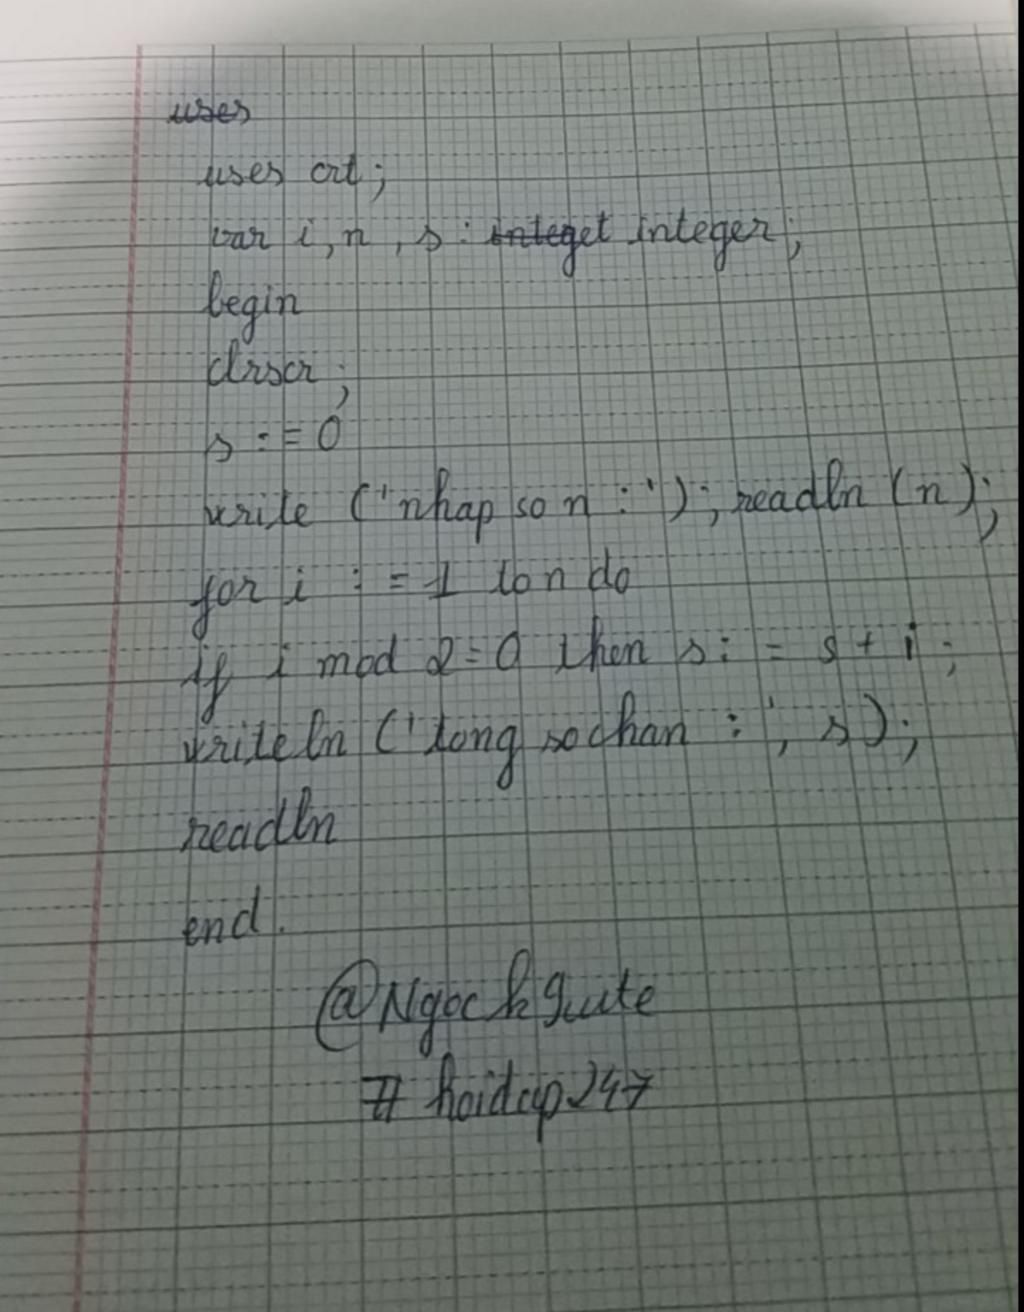 uses
uses crt;
var i, n, s : integet integer;
begin
clrscr;
s := 0
write ('nhap so n : '); readln (n);
for i := 1 to n do
if i mod 2 = 0 then s := s + i;
writeln ('tong so chan : ', s);
readln
end.
@Ngock9cute
# hoidap247